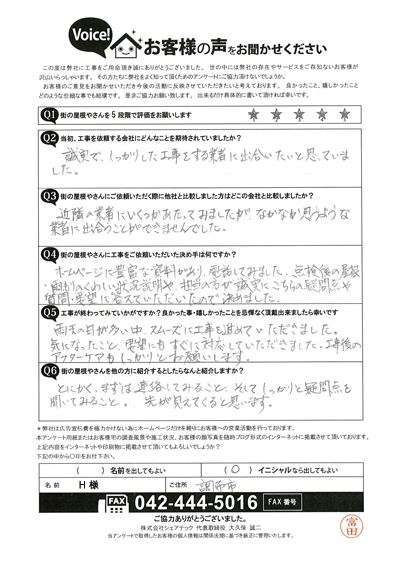 Voice! お客様の声をお聞かせください
この度は弊社に工事をご用命頂き誠にありがとうございました。世の中には弊社の存在やサービスをご存知ないお客様が
沢山いらっしゃいます。その方たちに弊社をよく知って頂くためのアンケートにご協力頂けないでしょうか。
お客様のご意見をお聞かせいただき今後の活動に反映させていただきたいと考えております。良かったこと、嬉しかったこと
どのような些細な事でも結構です。是非ご協力お願い致します。出来るだけ具体的に書いて頂ければ幸いです。
Q1 街の屋根やさんを5段階で評価をお願いします ★ ★ ★ ★ ★
Q2 当初、工事を依頼する会社にどんなことを期待されていましたか?
誠実で、しっかりした工事をする業者に出会いたいと思っていま
した。
Q3 街の屋根やさんにご依頼いただく際に他社と比較しました方はどこの会社と比較しましたか?
近隣の業者にいくつかあたってみましたが、なかなか思うような
業者に出会うことができませんでした。
Q4 街の屋根やさんに工事をご依頼いただいた決め手は何ですか?
ホームページに豊富な資料があり、電話してみました。点検後の屋根
・雨どいのくわしい状況説明や、担当の方が誠実にこちらの疑問点や
質問・要望に答えていただいたので決めました。
Q5 工事が終わってみていかがですか?良かった事・嬉しかったことを忌憚なく頂戴出来ましたら幸いです
雨天の日が多い中、スムーズに工事を進めていただきました。
気になったこと、要望にもすぐに対応していただきました。工事後の
アフターケアもしっかりとお願いします。
Q6 街の屋根やさんを他の方に紹介するとしたらなんと紹介しますか?
とにかく、まずは連絡してみること、そしてしっかりと疑問点を
聞いてみること。先が見えてくると思います。
*弊社は広告宣伝費を極力かけない為にホームページだけを頼りにお客様への営業活動を行っております。
本アンケート用紙またはお客様宅の調査風景や施工状況、お客様の顔写真を随時ブログ形式のインターネットに掲載させて頂いております。
上記内容をインターネットや印刷物に掲載させて頂いてもよろしいでしょうか?
下記の中から○印をお付け下さい。
( ) 名前を出してもよい (○) イニシャルなら出してもよい
名前 H様 ご住所 調布市
FAX 042-444-5016 FAX番号
ご協力ありがとうございました。
株式会社シェアテック 代表取締役 大久保 誠二
当アンケートで取得したお客様の個人情報は関係法規に基づき厳正に管理いたします。
富田